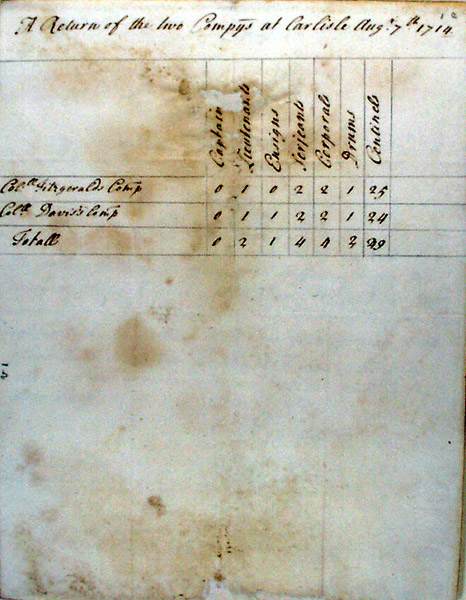 A Return of the two Compys at Carlisle Augt. 7th 1714
Captain Lieutenants Ensigns Serjeants Corporals Drums Centinels
Coll. Fitzgeralds Comp 0 1 0 2 2 1 25
Coll. Davis's Comp 0 1 1 2 2 1 24
Totall 0 2 1 4 4 2 49